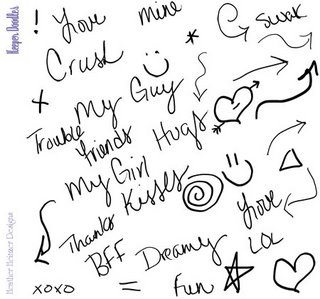 Keeper Doodles
! Love mine
* swak
Crush
+ My Guy
Trouble friends Hugs
My Girl
Kisses
Thanks Love
BFF Dreamy LOL
xoxo = fun
Heather Hetzner Designs